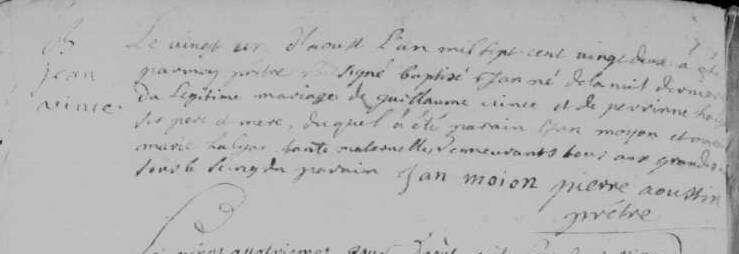 B
jean
vince
Le vingt un d'aoust l'an mil sept cent vingt deux a été
par moy prêtre soussigné baptisé Jan né de la nuit dernière
du légitime mariage de guillaume vince et de perrinne
ses pere et mere, duquel a été parain Jan moyon et
marie halgan tante maternelle, demeurants tous aux grands
sous le seing du parain Jan moion pierre aoustin
prêtre